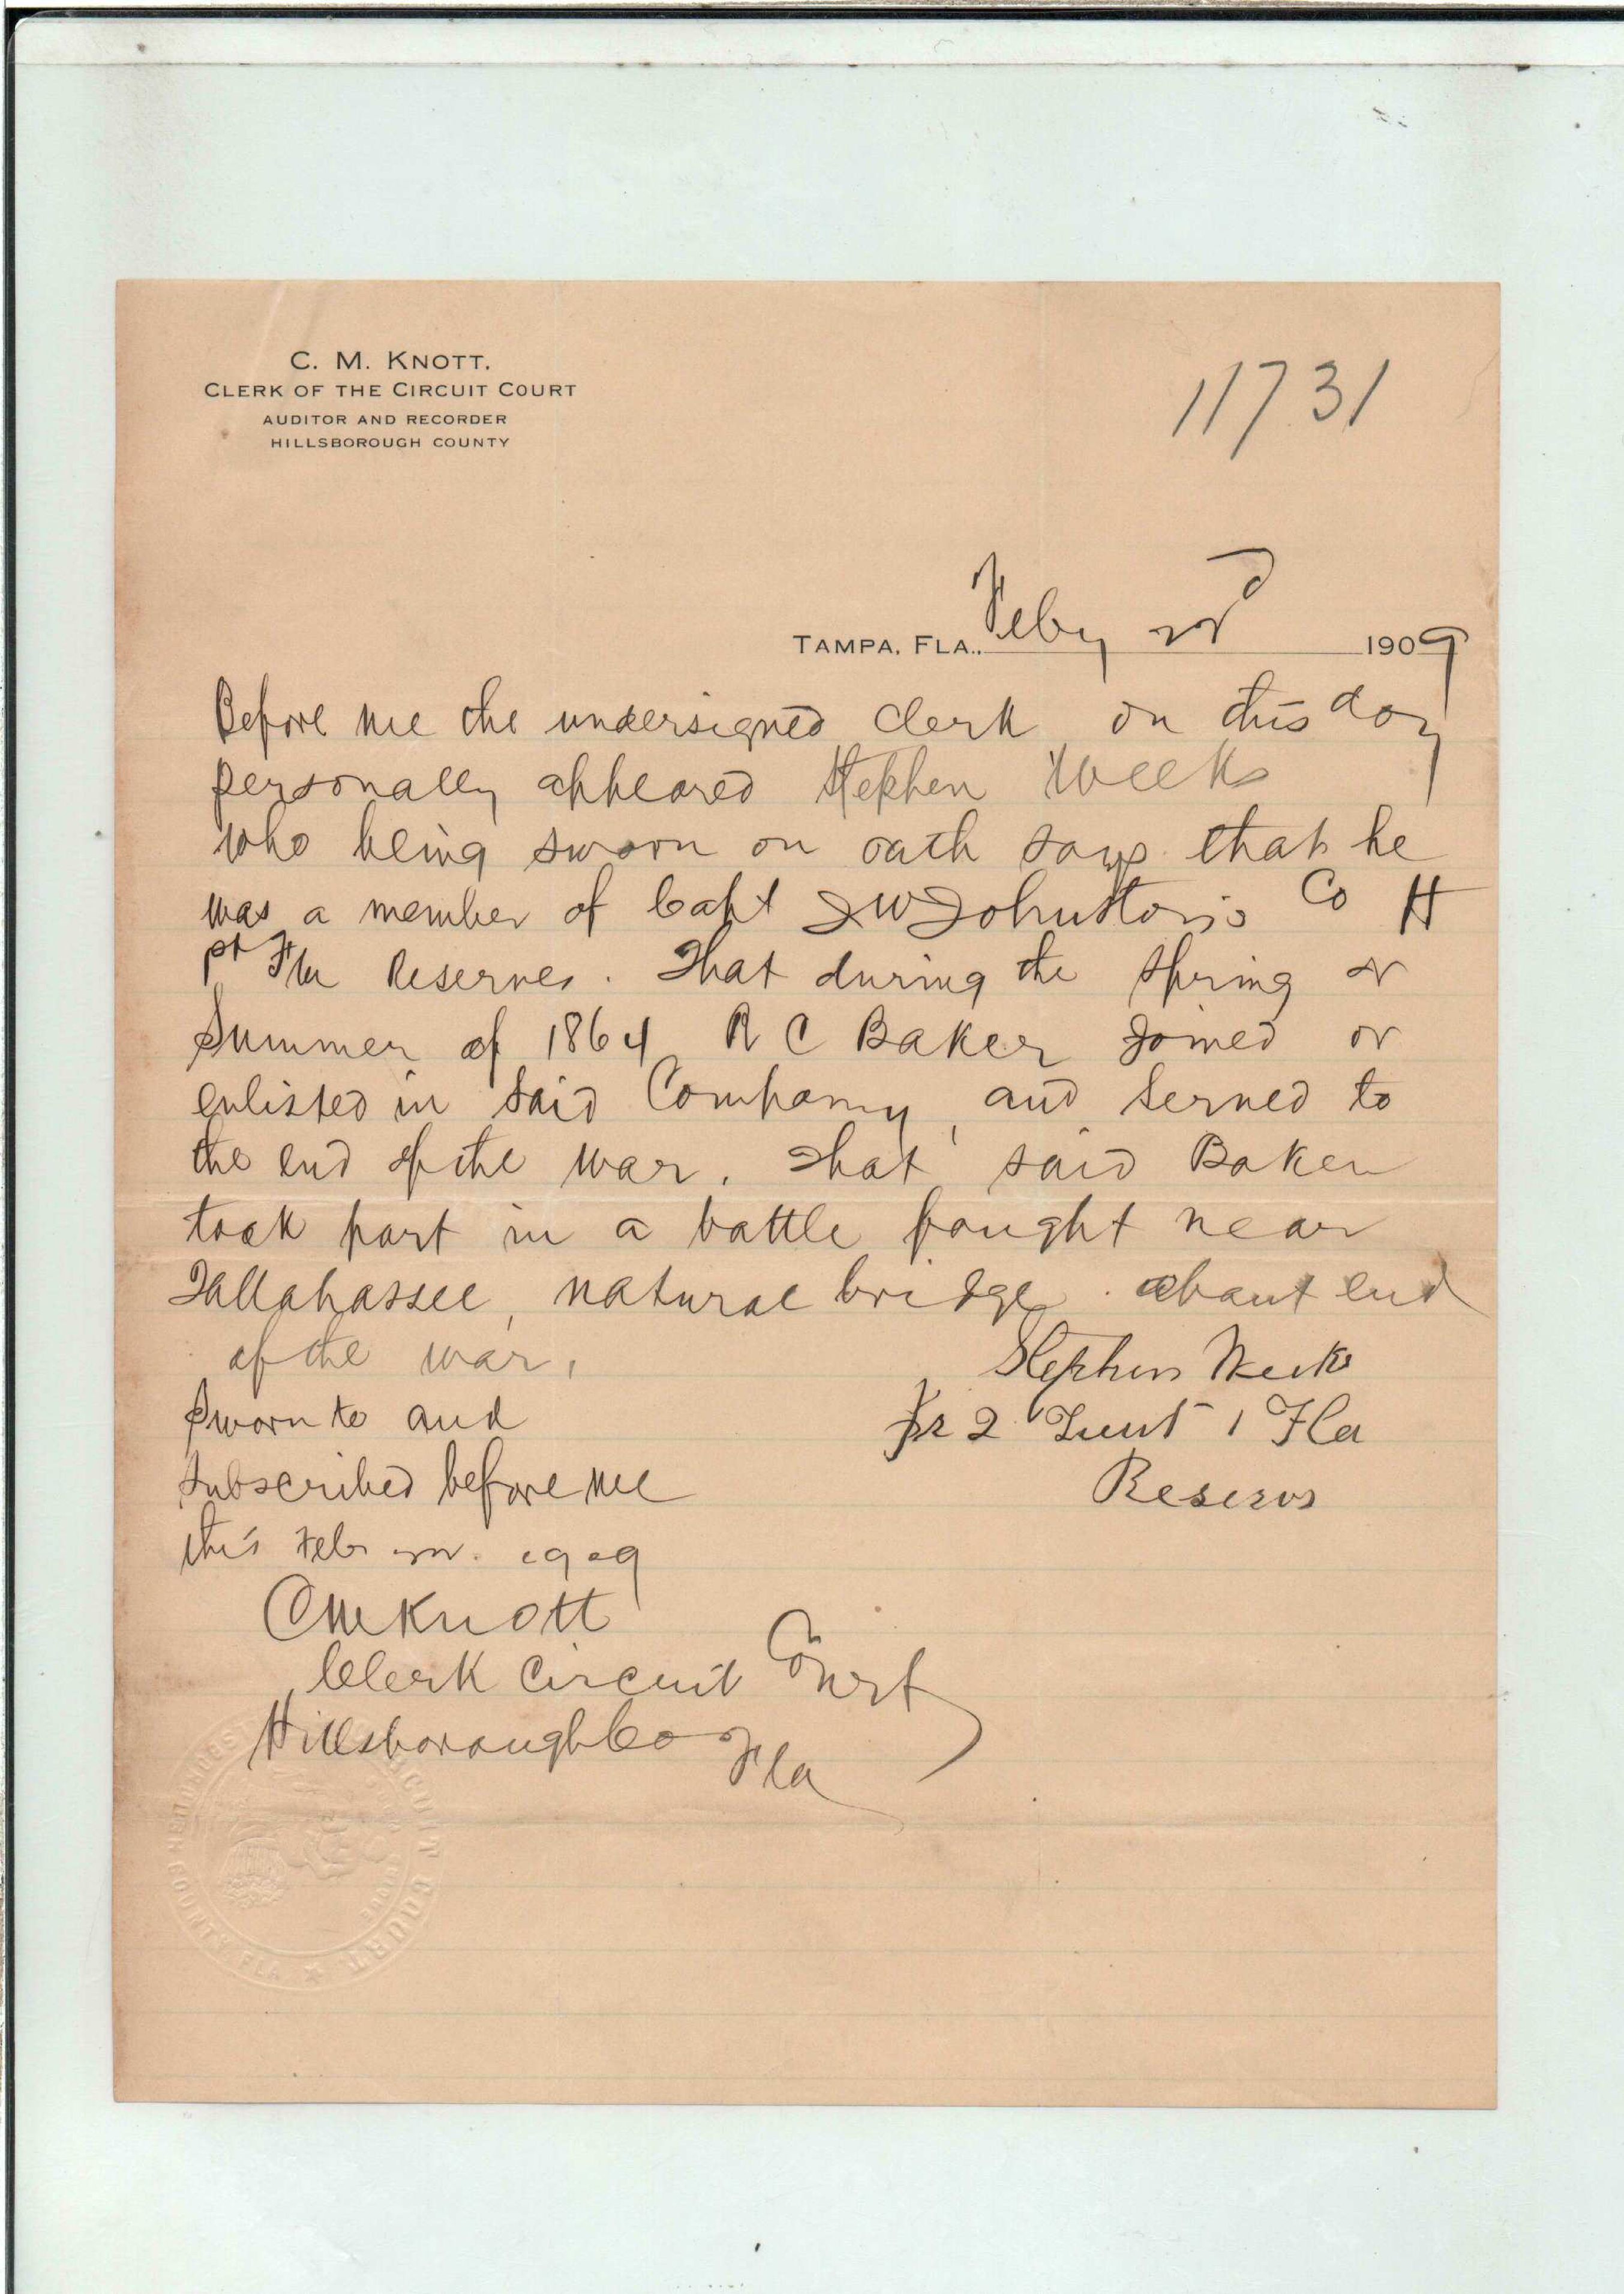 C. M. KNOTT.
CLERK OF THE CIRCUIT COURT
AUDITOR AND RECORDER
HILLSBOROUGH COUNTY
11731
TAMPA, FLA., Feby 22d 1909
Before me the undersigned Clerk on this day
personally appeared Stephen Weeks
who being sworn on oath says that he
was a member of Capt J W Johnston's Co H
1st Fla Reserves. That during the Spring or
Summer of 1864 R C Baker Joined or
enlisted in said Company, and served to
the end of the war. That said Baker
took part in a battle fought near
Tallahassee, natural bridge. about end
of the war,
Stephen Weeks
2 Lieut 1 Fla
Reservs
Sworn to and
subscribed before me
this Feb 22. 1909
C M Knott
Clerk Circuit Court
Hillsborough Co Fla
COUNTY, FLA